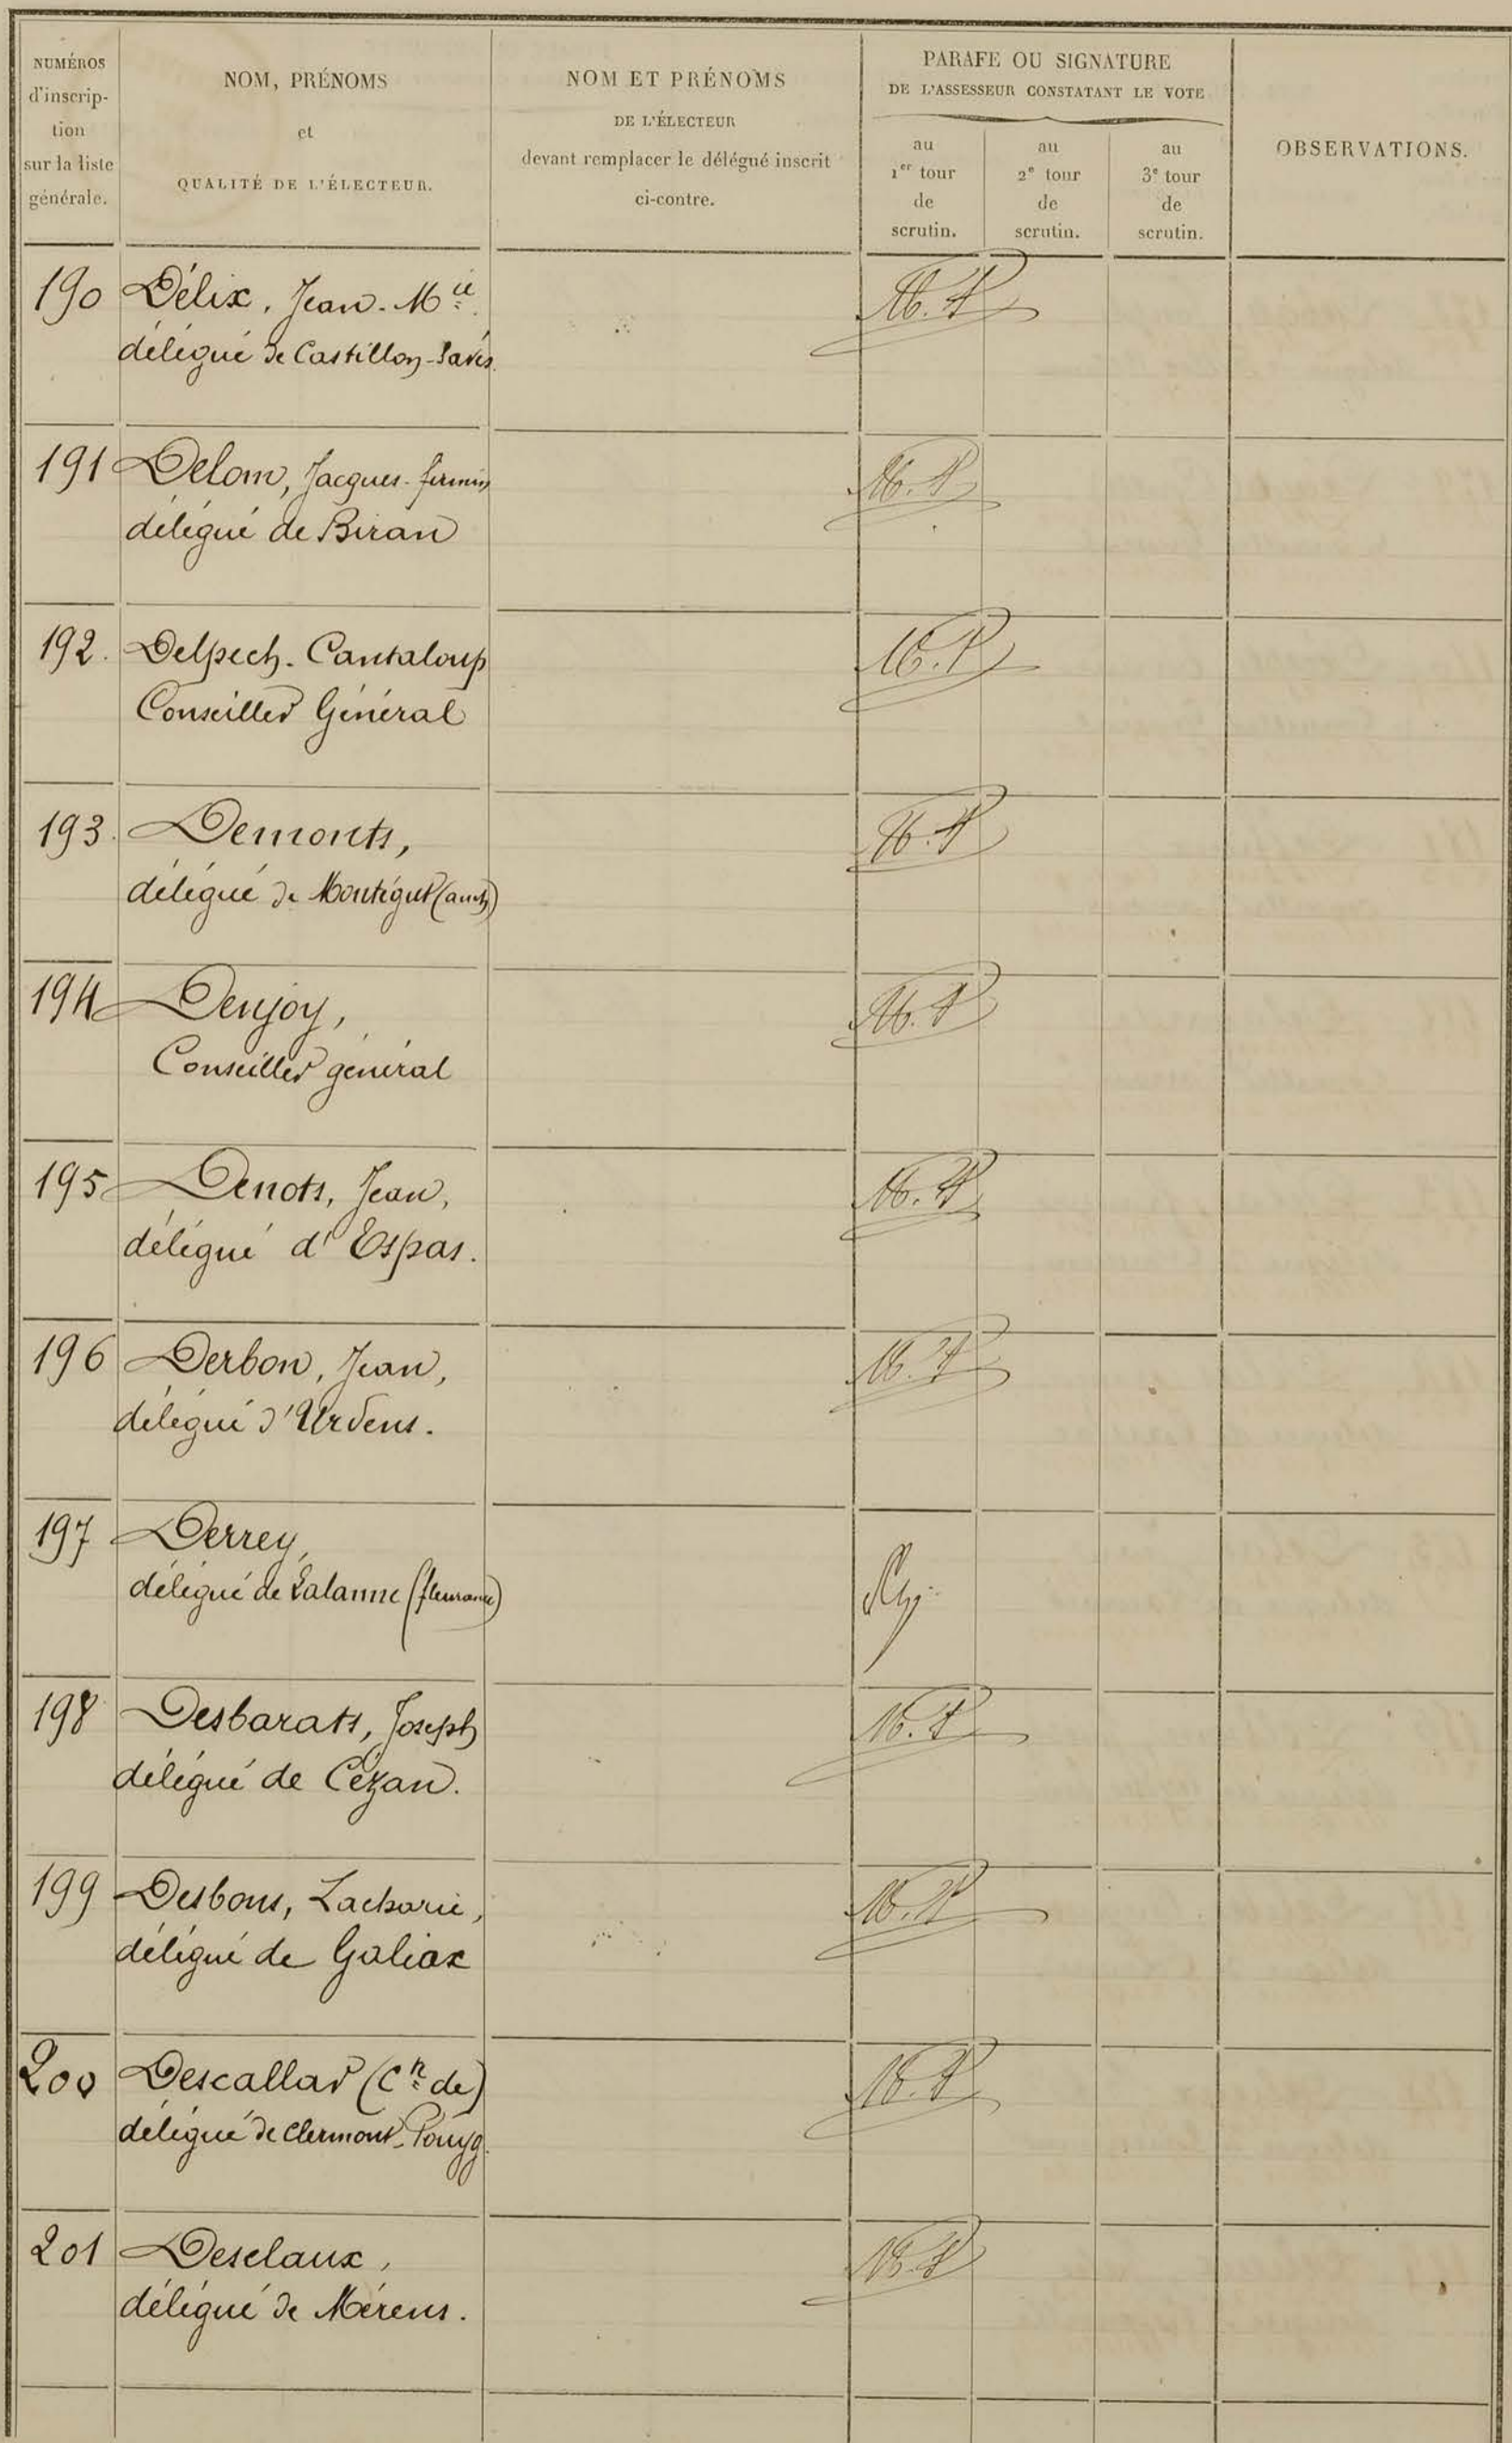 NUMÉROS
d'inscrip-
tion
sur la liste
générale.
NOM, PRÉNOMS
et
QUALITÉ DE L'ÉLECTEUR.
NOM ET PRÉNOMS
DE L'ÉLECTEUR
devant remplacer le délégué inscrit
ci-contre.
PARAFE OU SIGNATURE
DE L'ASSESSEUR CONSTATANT LE VOTE
au
1er tour
de
scrutin.
au
2e tour
de
scrutin.
au
3e tour
de
scrutin.
OBSERVATIONS.
190 Délix, Jean-Mie
délégué de Castillon-Savès.
191 Delom, Jacques-firmin
délégué de Biran
192. Delpech-Cantaloup
Conseiller Général
193. Demonts,
délégué de Montégut (auch)
194 Denjoy,
Conseiller général
195 Denots, Jean,
délégué d'Espas.
196 Derbon, Jean,
délégué d'Urdens.
197 Derrey,
délégué de Lalanne (fleurance)
198 Desbarats, Joseph
délégué de Cézan.
199 Desbons, Zacharie,
délégué de Galiax
200 Descallar (Cn de)
délégué de Clermont-Pouyg.
201 Desclaux,
délégué de Mérens.